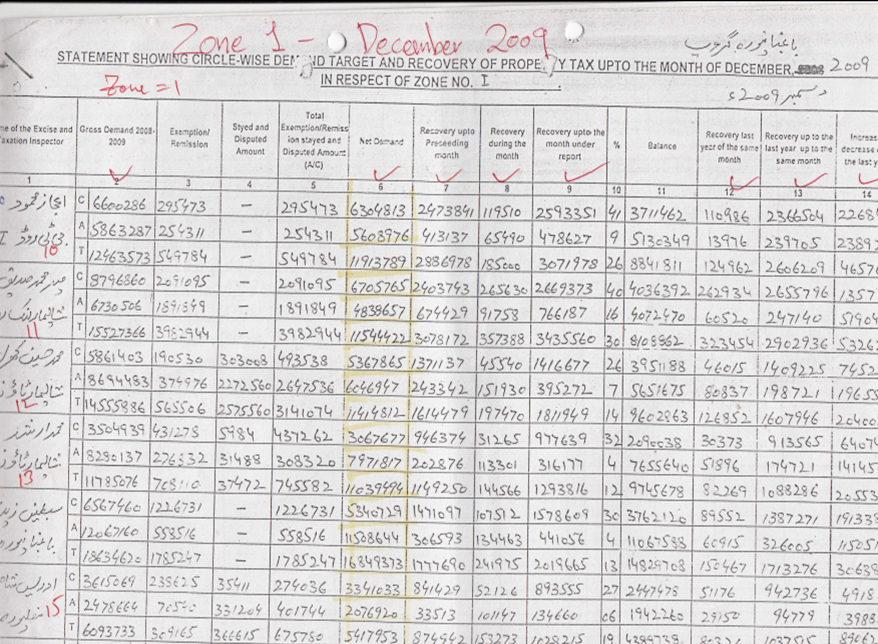 Zone 1 - December 2009
باغبانپورہ گروپ
STATEMENT SHOWING CIRCLE-WISE DEMAND TARGET AND RECOVERY OF PROPERTY TAX UPTO THE MONTH OF DECEMBER, 2009
IN RESPECT OF ZONE NO. I
Zone = 1
دسمبر 2009ء
me of the Excise and Taxation Inspector Gross Demand 2008-2009 Exemption/ Remission Styed and Disputed Amount Total Exemption/Remiss ion stayed and Disputed Amount (A/C) Net Demand Recovery upto Preseeding month Recovery during the month Recovery upto the month under report % Balance Recovery last year of the same month Recovery up to the last year up to the same month Increas decrease the last y
1 2 3 4 5 6 7 8 9 10 11 12 13 14
C 6600286 295473 – 295473 6304813 2473841 119510 2593351 41 3711462 110986 2366504 22684
A 5863287 254311 – 254311 5608976 413137 65490 478627 9 5130349 13976 239705 23892
10 T 12463573 549784 – 549784 11913789 2886978 185000 3071978 26 8841811 124962 2606209 46576
C 8796860 2091095 – 2091095 6705765 2403743 265630 2669373 40 4036392 262934 2655796 1357
A 6730506 1891849 – 1891849 4838657 674429 91758 766187 16 4072470 60520 247140 51904
11 T 15527366 3982944 – 3982944 11544422 3078172 357388 3435560 30 8108862 323454 2902936 53262
C 5861403 190530 303008 493538 5367865 1371137 45540 1416677 26 3951188 46015 1409225 7452
A 8694483 374976 2272560 2647536 6046947 243342 151930 395272 7 5651675 80837 198721 19655
12 T 14555886 565506 2575560 3141074 11414812 1614479 197470 1811949 14 9602863 126852 1607946 20400
C 3504939 431278 5984 437262 3067677 946374 31265 977639 32 2090038 30373 913565 64074
A 8280137 276832 31488 308320 7971817 202876 113301 316177 4 7655640 51896 174721 14145
13 T 11785076 708110 37472 745582 11039494 1149250 144566 1293816 12 9745678 82269 1088286 20553
C 6567460 1226731 – 1226731 5340729 1471097 107512 1578609 30 3762120 89552 1387271 191338
A 12067160 558516 – 558516 11508644 306593 134463 441056 4 11067588 60915 326005 11505
T 18634620 1785247 – 1785247 16849373 1777690 241975 2019665 13 14829708 150467 1713276 30638
C 3615069 238625 35411 274036 3341033 841429 52126 893555 27 2447478 51176 942736 4918
15 A 2478664 70540 331204 401744 2076920 33513 101147 134660 06 1942260 29150 94779 3988
T 6093733 309165 366615 675780 5417953 874942 153273 1028215 19